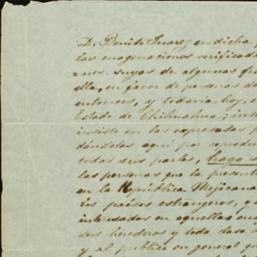 D. Benito Juarez en dicha
las enagenaciones verificada
suyas de algunas
ella, en favor de personas
entonces, y todavia hoy, e
Estado de Chihuahua;
insisto en las expresadas
dandolas aqui por reprodu
todas sus partes, hago
las personas que la presente
en la República Mejicana
los paises extranjeros,
interesadas en aquellas
sus herederos y toda clase
y al publico en general